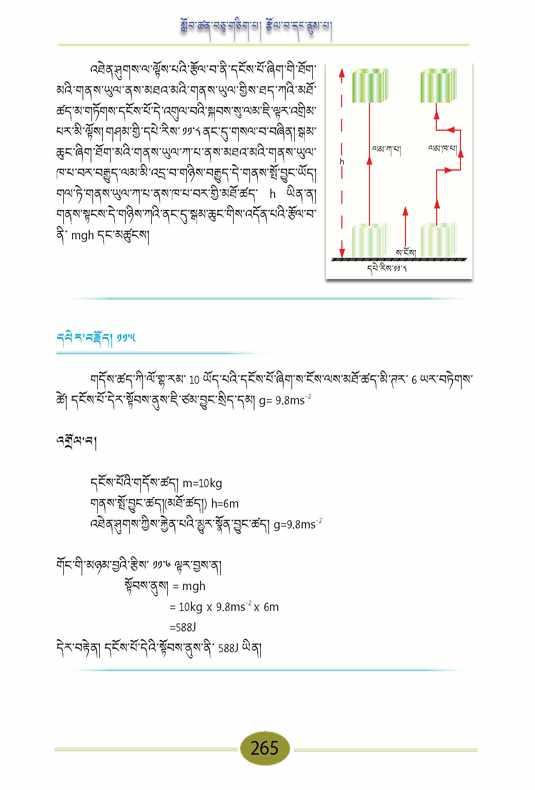 སློབ་ཚན་བཅུ་གཅིག་པ། རྩོལ་བ་དང་ནུས་པ།
འཐེན་ཤུགས་ལ་ལྟོས་པའི་རྩོལ་བ་ནི་དངོས་པོ་ཞིག་གི་ཐོག་
མའི་གནས་ཡུལ་ནས་མཐའ་མའི་གནས་ཡུལ་གྱིས་ཐད་ཀའི་མཐོ་
ཚད་མ་གཏོགས་དངོས་པོ་དེ་འགུལ་བའི་སྐབས་སུ་ལམ་ཇི་ལྟར་འགྲིམ་
པར་མི་ལྟོས། གཤམ་གྱི་དཔེ་རིས་ ༡༡་༨ ནང་དུ་གསལ་བ་བཞིན། སྒམ་
ཆུང་ཞིག་ཐོག་མའི་གནས་ཡུལ་ཀ་པ་ནས་མཐའ་མའི་གནས་ཡུལ་
ཁ་པ་བར་བརྒྱུད་ལམ་མི་འདྲ་བ་གཉིས་བརྒྱུད་དེ་གནས་སྤོ་བྱུང་ཡོད།
གལ་ཏེ་གནས་ཡུལ་ཀ་པ་ནས་ཁ་པ་བར་གྱི་མཐོ་ཚད་ h ཡིན་ན།
གནས་སྟངས་དེ་གཉིས་ཀའི་ནང་དུ་སྒམ་ཆུང་གིས་འདོན་པའི་རྩོལ་བ་
ནི་ mgh དང་མཚུངས།
h
ལམ་ཀ་པ།
ལམ་ཁ་པ།
ས་ངོས།
དཔེ་རིས་༡༡་༨
དཔེར་བརྗོད། ༡༡་༥
གདོས་ཚད་ཀི་ལོ་གྷ་རམ་ 10 ཡོད་པའི་དངོས་པོ་ཞིག་ས་ངོས་ལས་མཐོ་ཚད་མི་ཊར་ 6 ཡར་བཏེགས་
ཚེ། དངོས་པོ་དེར་སྟོབས་ནུས་ཇི་ཙམ་བྱུང་སྲིད་དམ། g= 9.8ms⁻²
འགྲོལ་བ།
དངོས་པོའི་གདོས་ཚད། m=10kg
གནས་སྤོ་བྱུང་ཚད།(མཐོ་ཚད།) h=6m
འཐེན་ཤུགས་ཀྱིས་རྐྱེན་པའི་མྱུར་སྣོན་བྱུང་ཚད། g=9.8ms⁻²
གོང་གི་མཉམ་བྱའི་རྩིས་ ༡༡་༦ ལྟར་བྱས་ན།
སྟོབས་ནུས། = mgh
= 10kg x 9.8ms⁻² x 6m
=588J
དེར་བརྟེན། དངོས་པོ་དེའི་སྟོབས་ནུས་ནི་ 588J ཡིན།
265